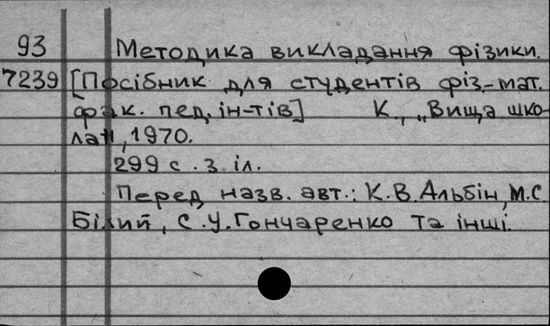 93 Методика викладання фізики.
7239 [Посібник для студентів фіз-мат.
фак. пед. ін-тів] К., „Вища шко-
ла", 1970.
299 с. з іл.
Перед назв. авт.: К.В.Альбін, М.С.
Білий, С.У.Гончаренко та інші.